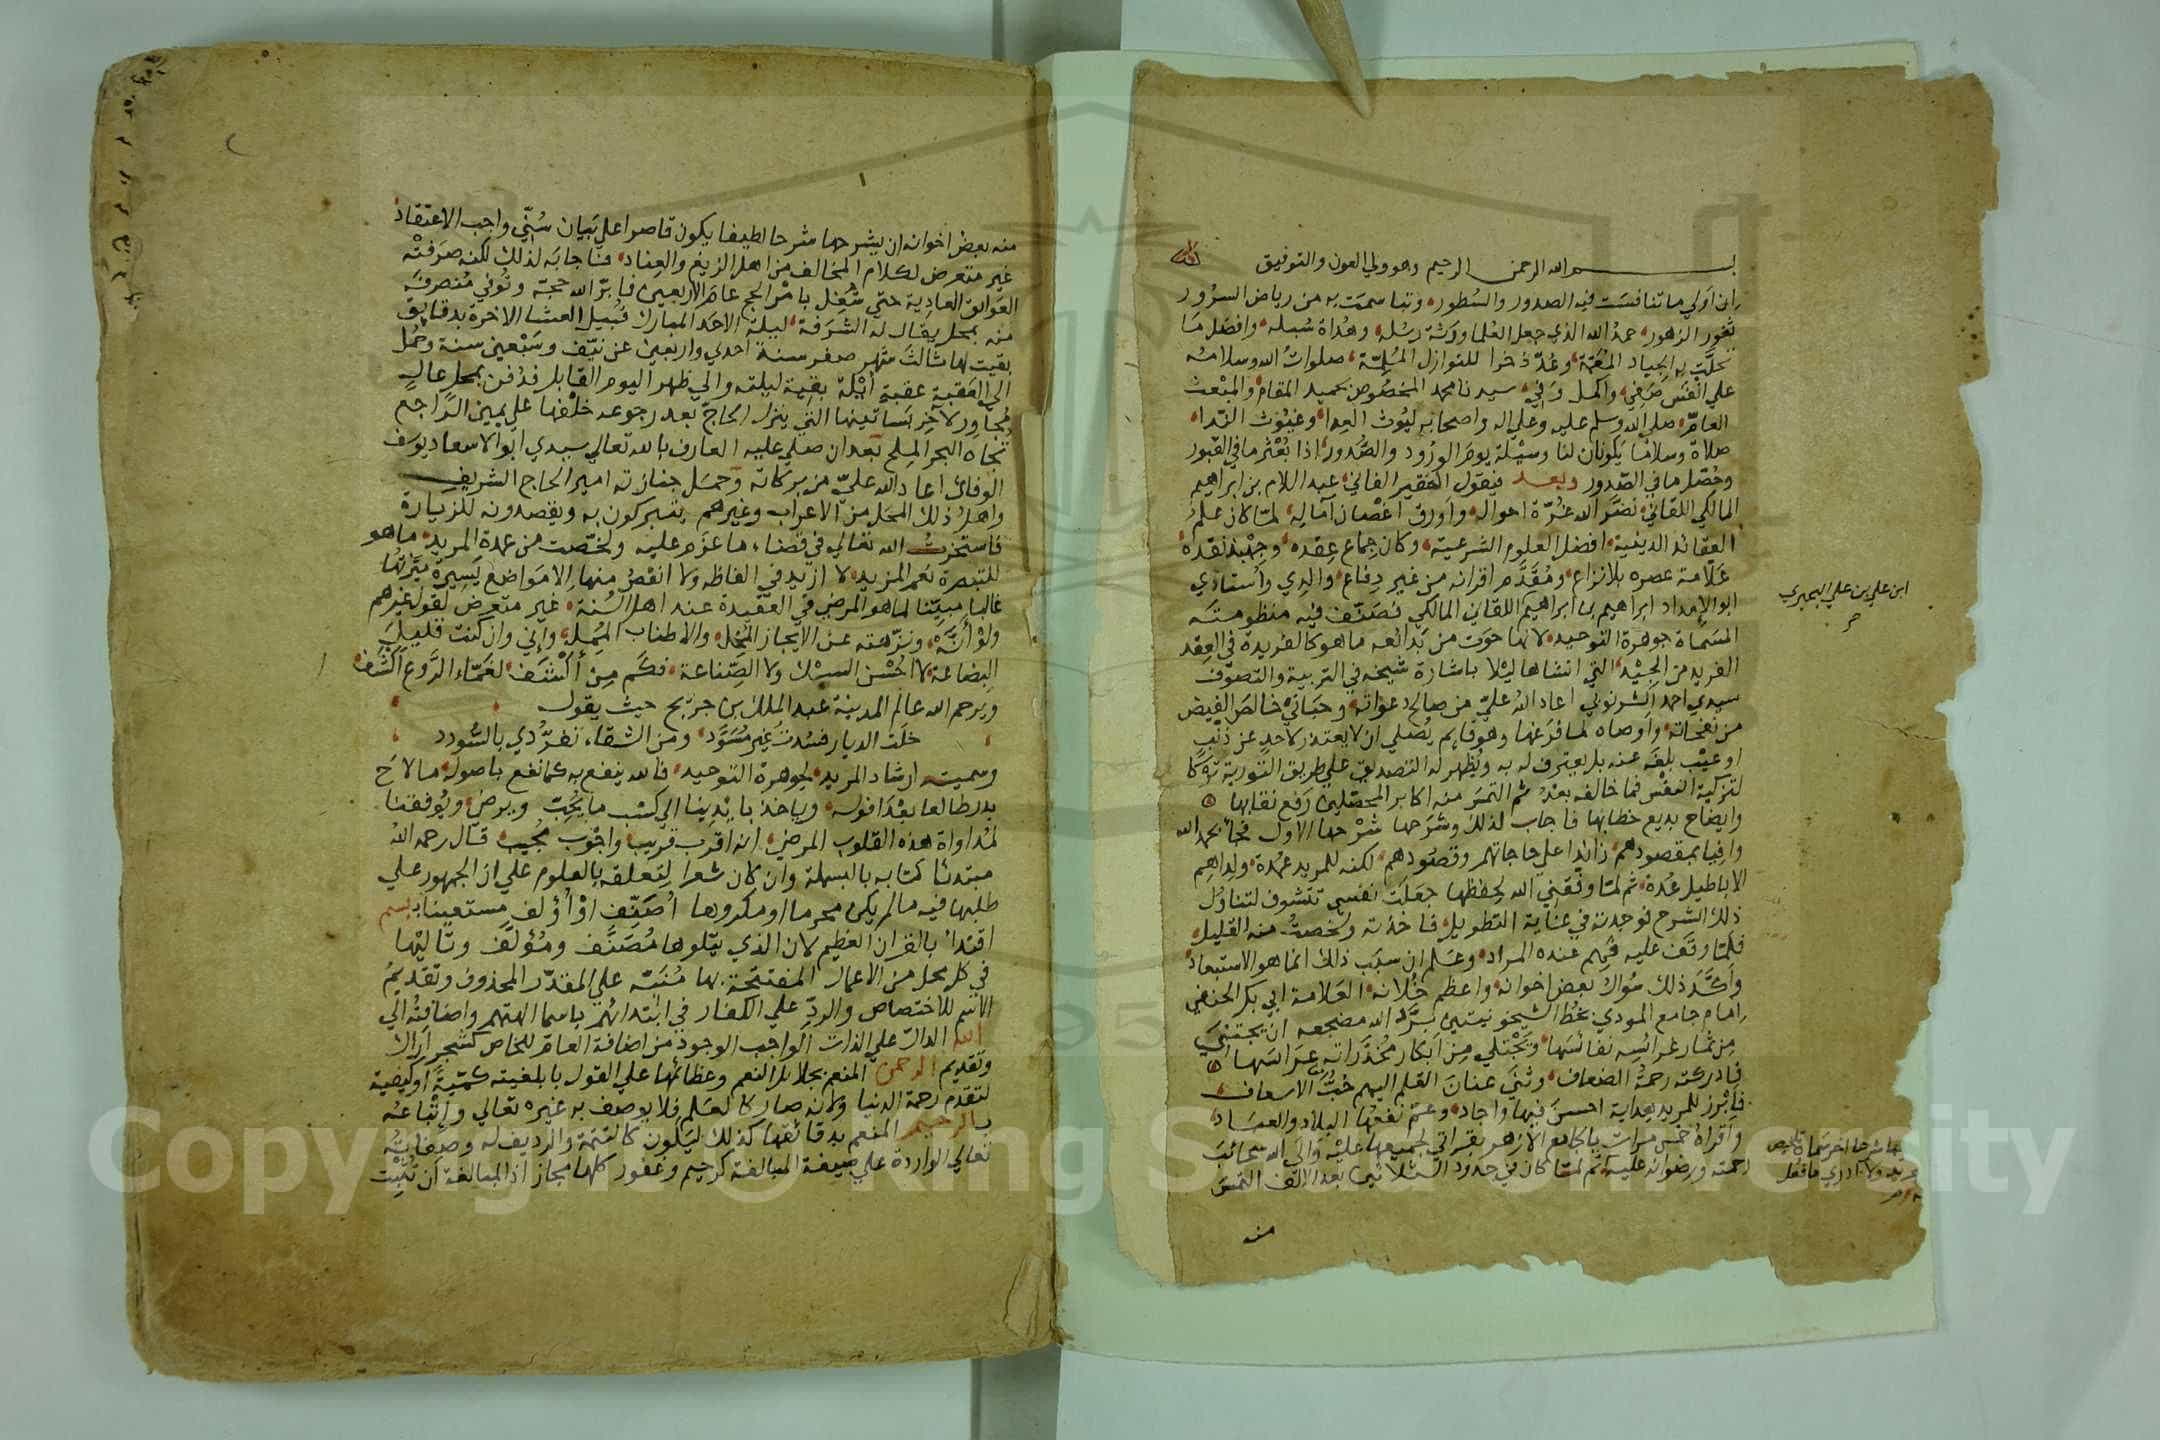 بسم الله الرحمن الرحيم وهو ولي العون والتوفيق
ان اولي ما تنافست فيه الصدور والسطور، وتباسمت به من رياض السرور
ثغور الزهور، حمد الله الذي جعل العلما ورثة رسله، وهداة سبله، وافضل ما
تحلت به الجياد، وعد ذخرا للنوازل الملمة، صلوات الله وسلامه
علي سيدنا محمد المخصوص بحميد المقام، والمبعث
العام، صلي الله وسلم عليه وعلي اله واصحابه ليوث العدا، وغيوث الندا،
صلاة وسلاما يكونان لنا وسيلة يوم الورود والصدور، اذا بعثر ما في القبور
وحصل ما في الصدور وبعد فيقول الفقير الفاني، عبد السلام بن ابراهيم
المالكي اللقاني، نضر الله غرة احواله، واورق اغصان اماله، لما كان علم
العقائد الدينية، افضل العلوم الشرعية، وكان جماع عقده، وجهبذ نقده،
علامة عصره بلا نزاع، ومقدم اقرانه من غير دفاع، والدي واستاذي
ابو الامداد ابراهيم بن ابراهيم اللقاني المالكي فصنف فيه منظومته
المسماة جوهرة التوحيد، لانها حوت من بدائعه ما هو كالفريدة في العقد
الفريد من الجيد، التي انشاها ليلا باشارة شيخه في التربية والتصوف
سيدي احمد الشرنوبي اعاد الله علي من صالح دعواته، وحباني خالص الفيض
من نفحاته، واوصاه لما فرغها وهو قايم يصلي ان لا يعتذر لاحد عن ذنب
او عيب بلغه عنه بل يعترف له به ويظهر له التصديق علي طريق التورية تركا
لتزكية النفس فما خالفه بعد، ثم التمس منه اكابر المحصلين رفع نقابها
وايضاح بديع خطابها فاجاب لذلك وشرحها شرحها الاول بحمد الله
وافيا بمقصودهم، زائدا علي حاجاتهم وقصودهم، لكنه للمريد عمدة،
الاباطيل عدة، ثم لما وفقني الله لحفظها جعلت نفسي تتشوف لتناول
ذلك الشرح فوجدته في غاية التطويل، فاخذته ولخصت منه القليل،
فلما وقف عليه فهم عنده المراد، وعلم ان سبب ذلك انما هو الاستبعاد
واكد ذلك سؤال بعض اخوانه، واعظم خلانه، العلامة ابي بكر الحنفي
امام جامع المودي بخط الشيخونيتين برد الله مضجعه ان يجتني
من ثمار غرائسه نفائسها، ويجتلي من ابكار مخدراته عرائسها
فادركته رحمة الضعاف، وثني عنان القلم اليهم حب الاسعاف،
فابرز للمريد بهداية احسن فيها واجاد، وعم نفعها البلاد والعباد،
واقراه خمس مرات بالجامع الازهر بقراتي لجميعها عليه، والي الله سحائب
رحمته ورضوانه عليه، ثم لما كان في حدود الثلاثين بعد الالف التمس
منه
ابن علي بن علي البحيري
منه بعض اخوانه ان يشرحها شرحا لطيفا يكون قاصرا علي بيان سني واجب الاعتقاد،
غير متعرض لكلام المخالف من اهل الزيغ والعناد، فاجابه لذلك لكنه صرفته
العوائق العادية حتي شغل بامر الحج عام الاربعين فابر الله حجه وتوفي منصرفه
منه بمحل يقال له الشرفة، ليلة الاحد المبارك قبيل العشا الاخرة بدقايق
بقيت لها ثالث شهر صفر سنة احدي واربعين عن نيف وسبعين سنة وحمل
الي العقبة عقبة ايلة بقية ليلته والي ظهر اليوم القابل فدفن بمحل عال
مجاور لاخر بساتينها التي ينزل الحاج بعد رجوعه خلفها علي يمين الراجع
تجاه البحر الملح بعد ان صلي عليه العارف بالله تعالي سيدي ابو الاسعاد يوسف
الوفائي اعاد الله علي من بركاته وحمل جنازته امير الحاج الشريف
واهل ذلك المحل من الاعراب وغيرهم يتبركون به ويقصدونه للزيارة
فاستخرت الله تعالي في قضاء ما عزم عليه ولخصت من عمدة المريد، ما هو
للتبصرة نعم المزيد، لا ازيد في الفاظه ولا انقص منها الا مواضع يسيرة ميزتها
غالبا، مبينا لما هو المرضي في العقيدة عند اهل السنة، غير متعرض لقول غيرهم
ونزهته عن الايجاز المخل، والاطناب الممل، واني وان كنت قليل
البضاعة، لا احسن السبك ولا الصناعة، فكم من
ويرحم الله عالم المدينة عبد الملك بن جريج حيث يقول
خلت الديار فسدت غير مسود، ومن الشقاء تفردي بالسودد
وسميته ارشاد المريد، لجوهرة التوحيد، فالله ينفع به كما نفع باصوله، ما لاح
بدر طالعا بعد افوله، وياخذ بايدينا الي كسب ما يحب ويرضي، ويوفقنا
لمداواة هذه القلوب المرضي، انه اقرب قريب، واجوب مجيب، قال رحمه الله
مبتدئا كتابه بالبسملة وان كان شعرا لتعلقه بالعلوم علي ان الجمهور علي
طلبها فيه ما لم يكن محرما او مكروها اصنف او اؤلف مستعينا بسم
اقتداء بالقران العظيم لان الذي يتلوها مصنف ومؤلف وتاليها
في كل محل من الاعمال المفتتحة بها منبه علي المقدر المحذوف وتقديم
الاسم للاختصاص والرد علي الكفار في ابتدائهم باسما الهتهم واضافته الي
الله الدال علي الذات الواجب الوجود من اضافة العام للخاص كشجر اراك
وتقديم الرحمن المنعم بجلائل النعم وعظائمها علي القول بابلغيته كمية او كيفية
لتقدم رحمة الدنيا ولانه صار كالعلم فلا يوصف به غيره تعالي واتباعه
بالرحيم المنعم بدقائقها كذلك ليكون كالتتمة والرديف له وصفاته
تعالي الواردة علي صيغة المبالغة كرحيم وغفور كلها مجاز اذ المبالغة ان تثبت